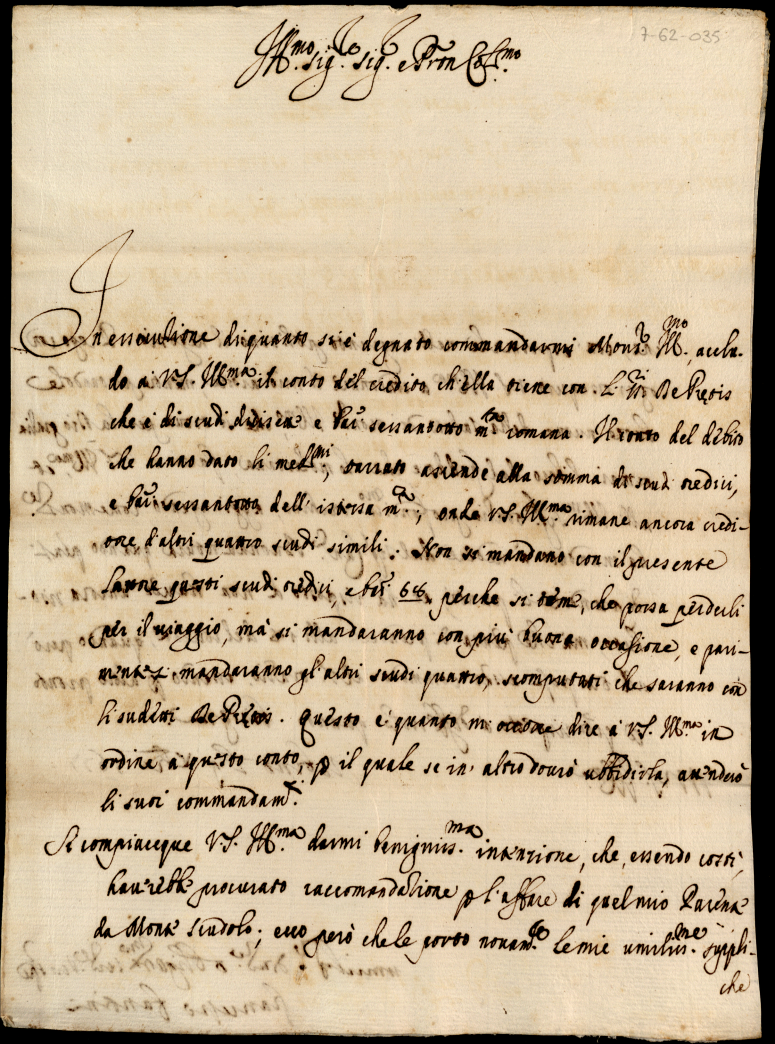 7-62-035
Ill.mo Sig.re Sig.r e Pron Col.mo
In essecutione di quanto si è degnato commandarmi Mons.re Ill.mo, acclu-
do à V.S. Ill.ma il conto del credito ch'ella tiene con li SS.ri De Pretis
che è di scudi diciset e baj sessantotto m.ta romana. Il conto del debito
che hanno dato li med.mi, tassato asciende alla somma di scudi tredici,
e baj sessantotto dell'istessa m.ta; onde V.S. Ill.ma rimane ancora credi-
tore d'altri quattro scudi simili. Non si mandano con il presente
latore questi scudi tredici, e baj 68 perche si teme, che possa perderli
per il viaggio, mà si mandaranno con più buona occasione, e pari-
mente mandaranno gl'altri scudi quattro, scomputati che saranno con
li sudetti De Pretis. Questo è quanto m'occorre dire à V.S. Ill.ma in
ordine, à questo conto, p il quale se in altro dovrò ubbidirla, attenderò
li suoi commandam.ti.
Si compiacque V.S. Ill.ma darmi benigniss.ma intenzione, che, essendo costì,
havrebbe procurato raccomandatione p l'affare di quel mio Parente
da Monte Scudolo; ecco però che le porto novam.te le mie umiliss.me suppli-
che